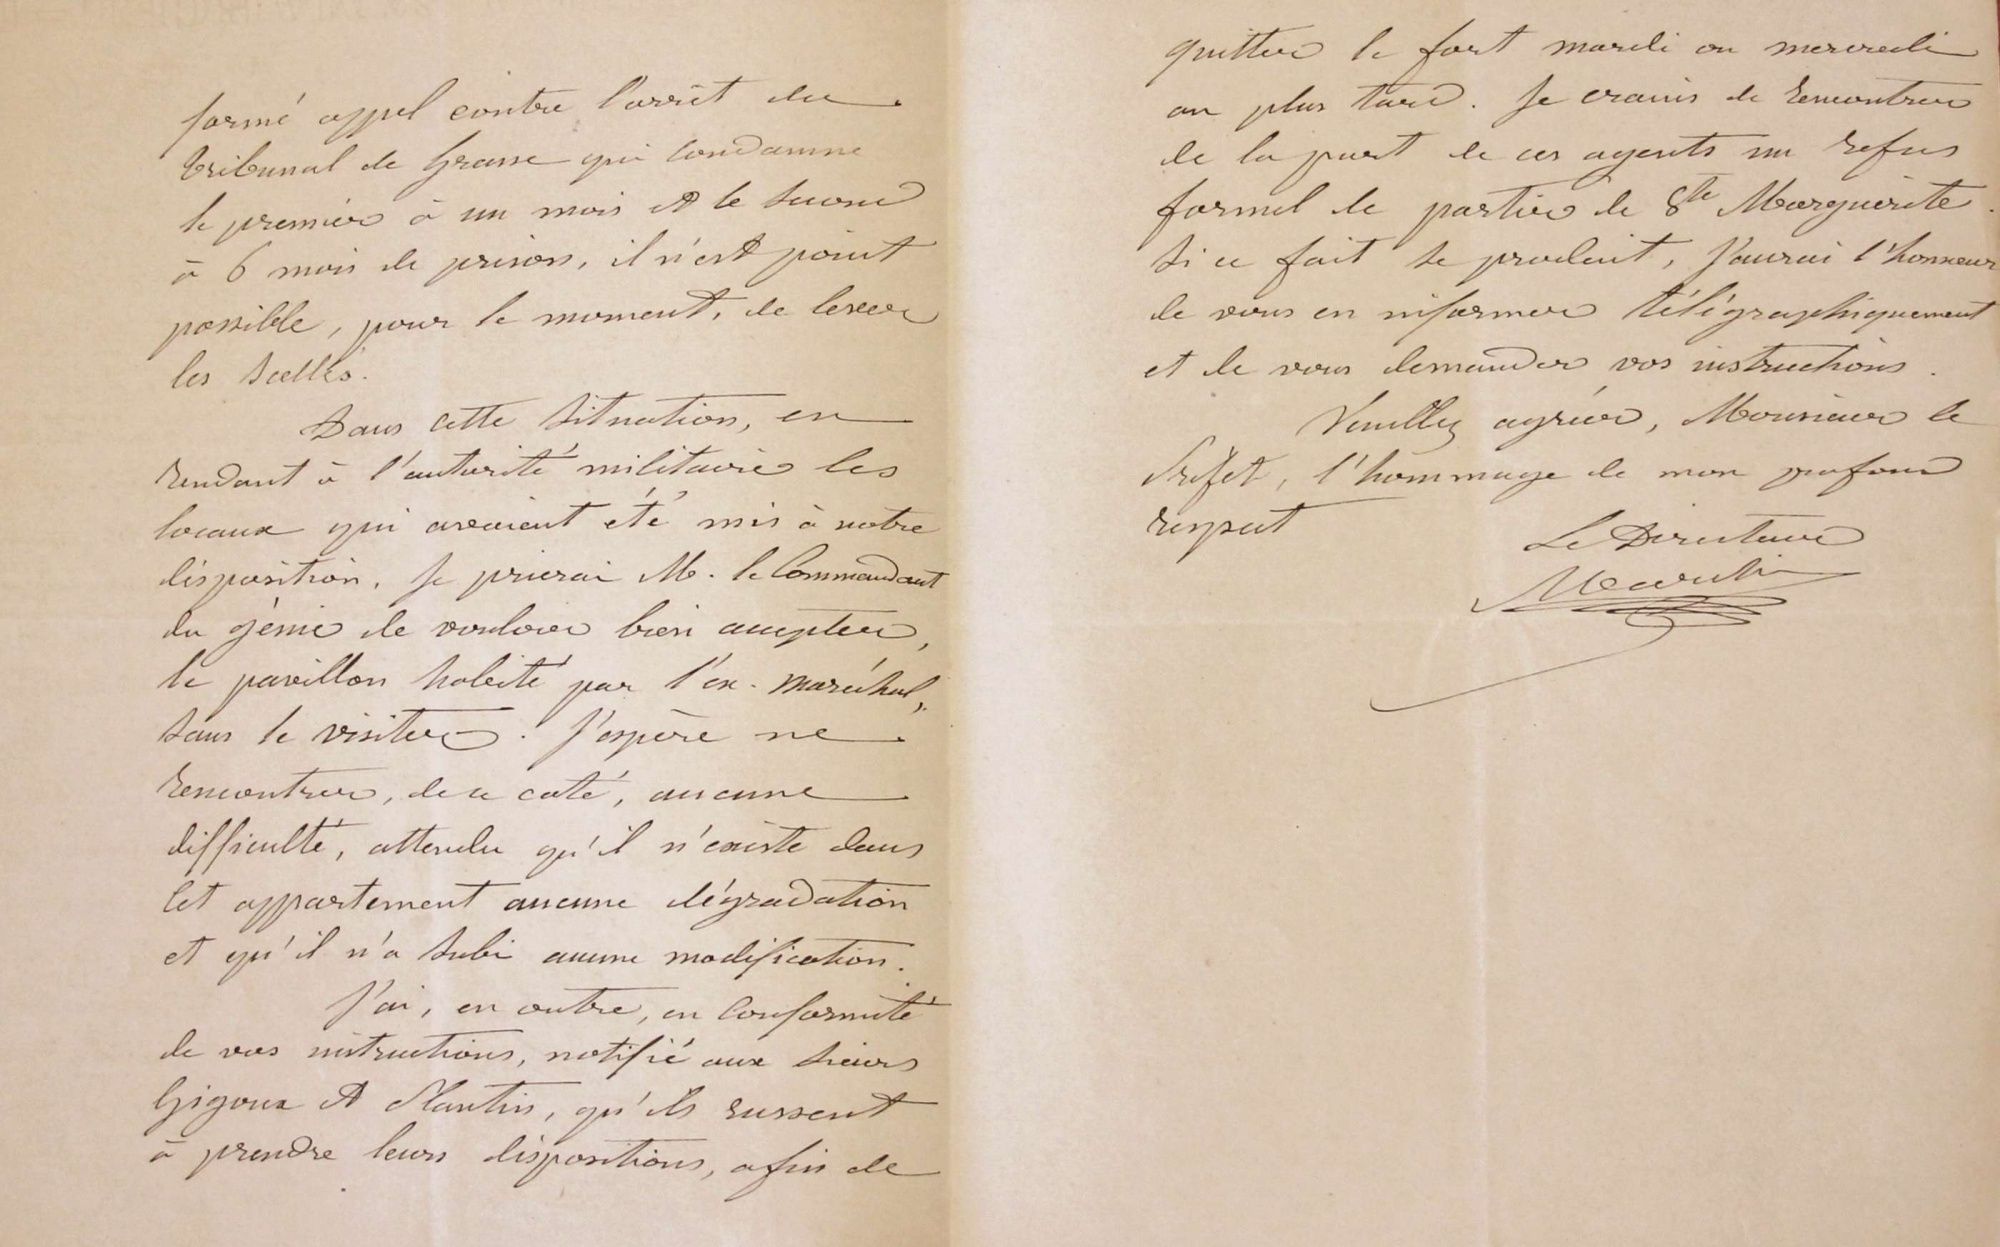 formé appel contre l'arrêt du
tribunal de Grasse qui condamne
le premier à un mois et le second
à 6 mois de prison, il n'est point
possible, pour le moment, de lever
les scellés.
Dans cette situation, en
rendant à l'autorité militaire les
locaux qui avaient été mis à notre
disposition, je prierai M. le Commandant
du génie de vouloir bien accepter,
le pavillon habité par l'ex-maréchal,
sans le visiter. J'espère ne
rencontrer, de ce coté, aucune
difficulté, attendu qu'il n'existe dans
cet appartement aucune dégradation
et qu'il n'a subi aucune modification.
J'ai, en outre, en conformité
de vos instructions, notifié aux sieurs
Gigoux et Plantin, qu'ils eussent
à prendre leurs dispositions, afin de
quitter le fort mardi ou mercredi
au plus tard. Je crains de rencontrer
de la part de ces agents un refus
formel de partir de Ste Marguerite.
Si ce fait se produit, j'aurai l'honneur
de vous en informer télégraphiquement
et de vous demander vos instructions.
Veuillez agréer, Monsieur le
Préfet, l'hommage de mon profond
respect
Le Directeur